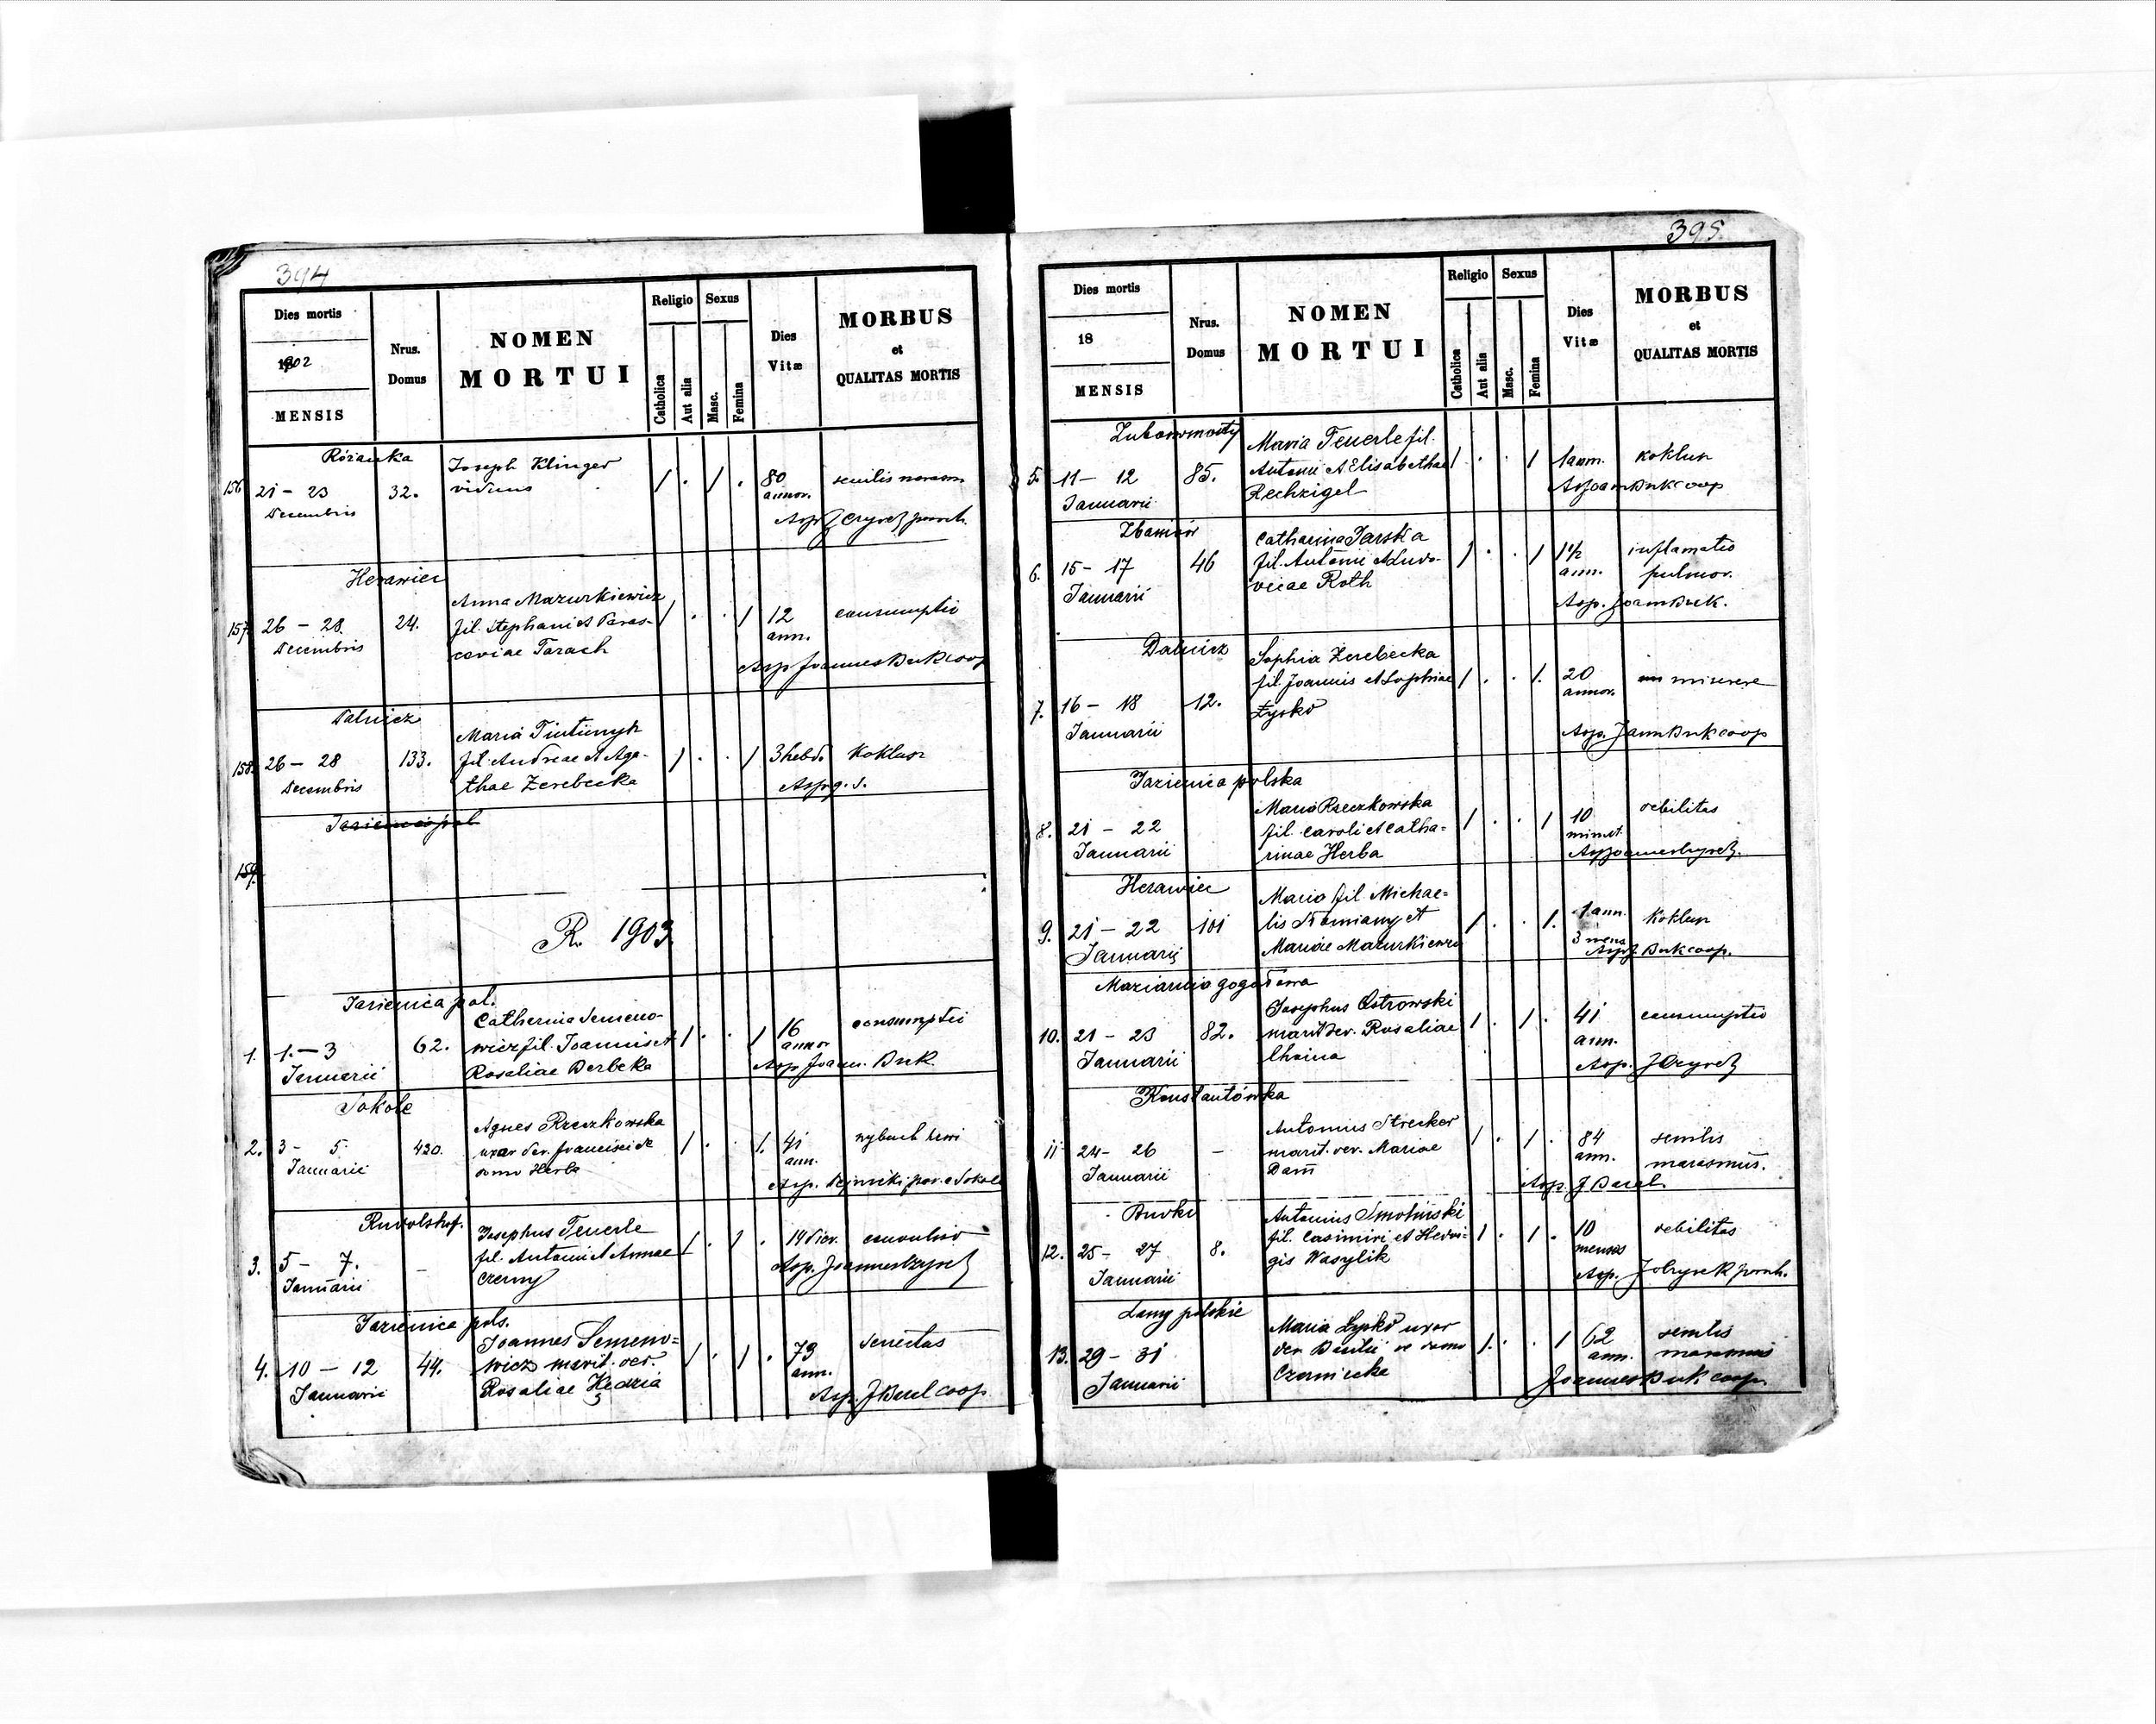 394
Dies mortis
1902
MENSIS
Nrus.
Domus
NOMEN
MORTUI
Religio
Catholica
Aut alia
Sexus
Masc.
Femina
Dies
Vitæ
MORBUS
et
QUALITAS MORTIS
Różanka
156
21 - 23
Decembris
32.
Joseph Klinger
viduus
80
annor.
senilis
Herawiec
157.
26 - 28.
Decembris
24.
Anna Mazurkiewicz
fil. Stephani et Paras-
coviae Tarach
12
ann.
consumptio
Asp Joannes Buk coop
Dalnicz
158.
26 - 28
Decembris
133.
Maria
fil. Andreae et Aga-
thae Zerebecka
3 hebd.
Koklusz
Asp. q. s.
159.
R. 1903.
Jazienica pol.
1.
1. - 3
Januarii
62.
Catherina Semeno-
wicz fil. Joannis et
Rosaliae Derbeka
16
annor
consumptio
Asp Joann. Buk
Sokole
2.
3 - 5
Januarii
430.
Agnes Rzeczkowska
uxor der. Francisci de
domo Herba
41
ann.
wybuch krwi
Asp. par. e Sokole
Rudolshof.
3.
5 - 7.
Januarii
-
Josephus Feuerle
fil. Antonii et Annae
Czerny
14 dier.
convulsio
Jazienica pols.
4.
10 - 12
Januarii
44.
Joannes Semeno-
wicz marit. der.
Rosaliae Kędzia
73
ann.
senectus
Asp. J Barel coop
395.
Dies mortis
18
MENSIS
Nrus.
Domus
NOMEN
MORTUI
Religio
Catholica
Aut alia
Sexus
Masc.
Femina
Dies
Vitæ
MORBUS
et
QUALITAS MORTIS
5.
11 - 12
Januarii
85.
Maria Feuerle fil.
Antonii et Elisabethae
Rechzigel
1 ann.
koklusz
Asp Joann Buk coop
6.
15 - 17
Januarii
46
Catharina Jarska
fil. Antonii et Ludo-
vicae Roth
1½
ann.
inflamatio
pulmor.
Asp. Joann Buk.
Dalnicz
7.
16 - 18
Januarii
12.
Sophia Zerebecka
fil. Joannis et Sophiae
Łysko
20
annor.
miserere
Asp. Joann Buk coop
Jazienica polska
8.
21 - 22
Januarii
Maria Rzeczkowska
fil. Caroli et Catha-
rinae Herba
10
minut.
debilitas
Herawiec
9.
21 - 22
Januarii
101
Maria fil. Michae-
lis et
Mariae Mazurkiewicz
1 ann.
3 mens
koklusz
Asp J. Buk coop.
10.
21 - 23
Januarii
82.
Josephus Ostrowski
marit der. Rosaliae
41
ann.
consumptio
Konstantówka
11
24 - 26
Januarii
-
Antonius Strecker
marit. der. Mariae
Dam
84
ann.
senilis
marasmus.
Asp. J Barel.
Budki
12.
25 - 27
Januarii
8.
Antonius Smoliński
fil. Casimiri et Hedvi-
gis Wasylik
10
menses
debilitas
Łany polskie
13.
29 - 31
Januarii
Maria Łysko uxor
der. Basilii de domo
Czarniecka
62
ann.
senilis
marasmus
Joannes Buk coop.